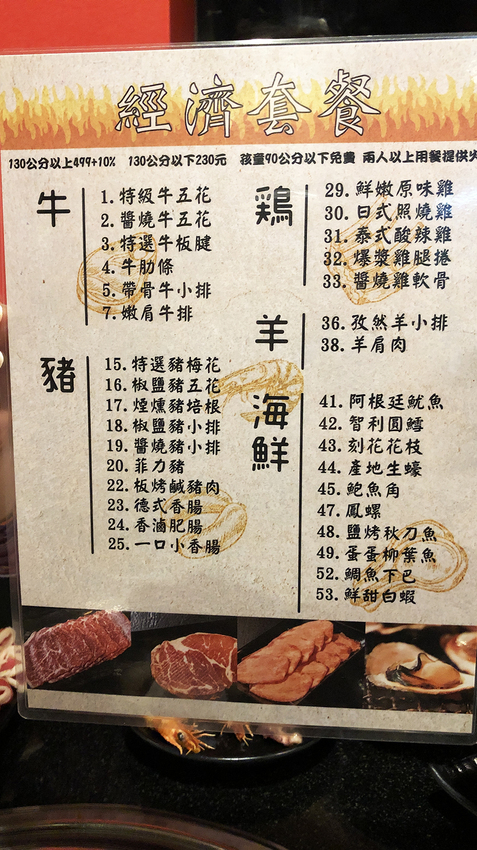 經濟套餐
130公分以上499+10% 130公分以下230元 孩童90公分以下免費 兩人以上用餐提供
牛
1. 特級牛五花
2. 醬燒牛五花
3. 特選牛板腱
4. 牛肋條
5. 帶骨牛小排
7. 嫩肩牛排
豬
15. 特選豬梅花
16. 椒鹽豬五花
17. 煙燻豬培根
18. 椒鹽豬小排
19. 醬燒豬小排
20. 菲力豬
22. 板烤鹹豬肉
23. 德式香腸
24. 香滷肥腸
25. 一口小香腸
鶏
29. 鮮嫩原味雞
30. 日式照燒雞
31. 泰式酸辣雞
32. 爆漿雞腿捲
33. 醬燒雞軟骨
羊
36. 孜然羊小排
38. 羊肩肉
海鮮
41. 阿根廷魷魚
42. 智利圓鱈
43. 刻花花枝
44. 產地生蠔
45. 鮑魚角
47. 鳳螺
48. 鹽烤秋刀魚
49. 蛋蛋柳葉魚
52. 鯛魚下巴
53. 鮮甜白蝦